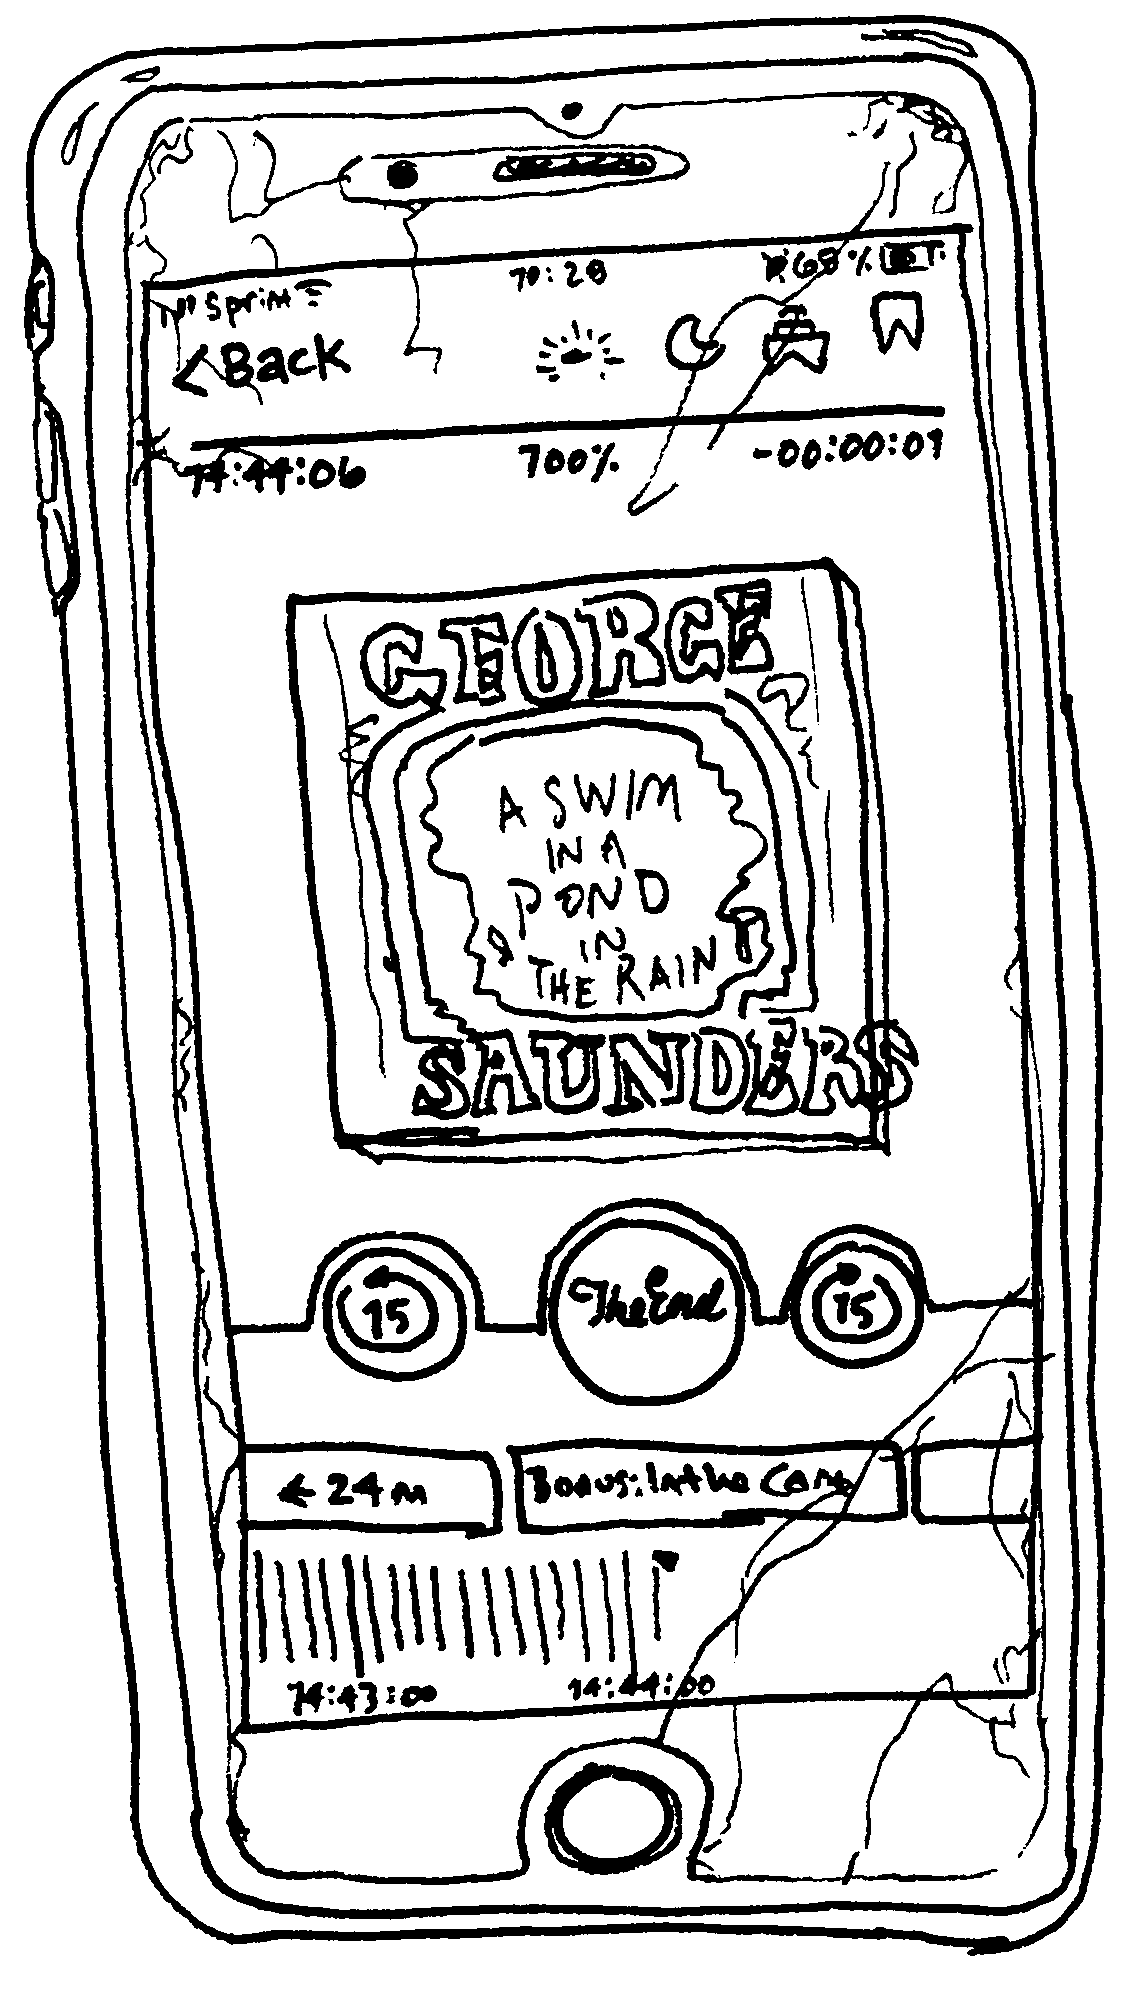 Sprint 10:28 68%
<Back
14:44:06 100% -00:00:01
GEORGE
A SWIM
IN A
POND
IN
THE RAIN
SAUNDERS
15 The End 15
←24m Bonus: In the Cart
14:43:00 14:44:00